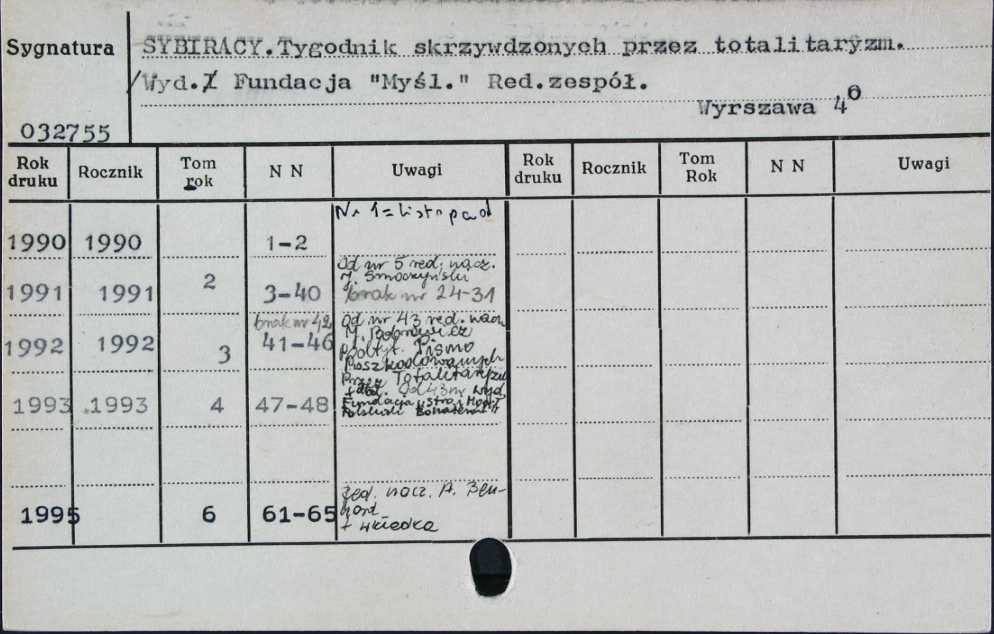 Sygnatura
SYBIRACY.Tygodnik skrzywdzonych przez totalitaryzm.
/Wyd.X Fundacja "Myśl." Red.zespół.
Wyrszawa 4o
032755
Rok druku Rocznik Tom rok N N Uwagi Rok druku Rocznik Tom Rok N N Uwagi
Nr 1=listopad
1990 1990 1-2
Od nr 5 red. nacz.
J. Smoczyński
1991 1991 2 3-40 brak nr 24-31
brak nr 42 Od nr 43 red. nacz.
1992 1992 3 41-46
podtyt. Pismo
Poszkodowanych
Przez Totalitaryzm
Od 43 nr wyd.
1993 1993 4 47-48 Fundacja
Polskim
Red. nacz. A. Ben-
1995 6 61-65
+ wkładka